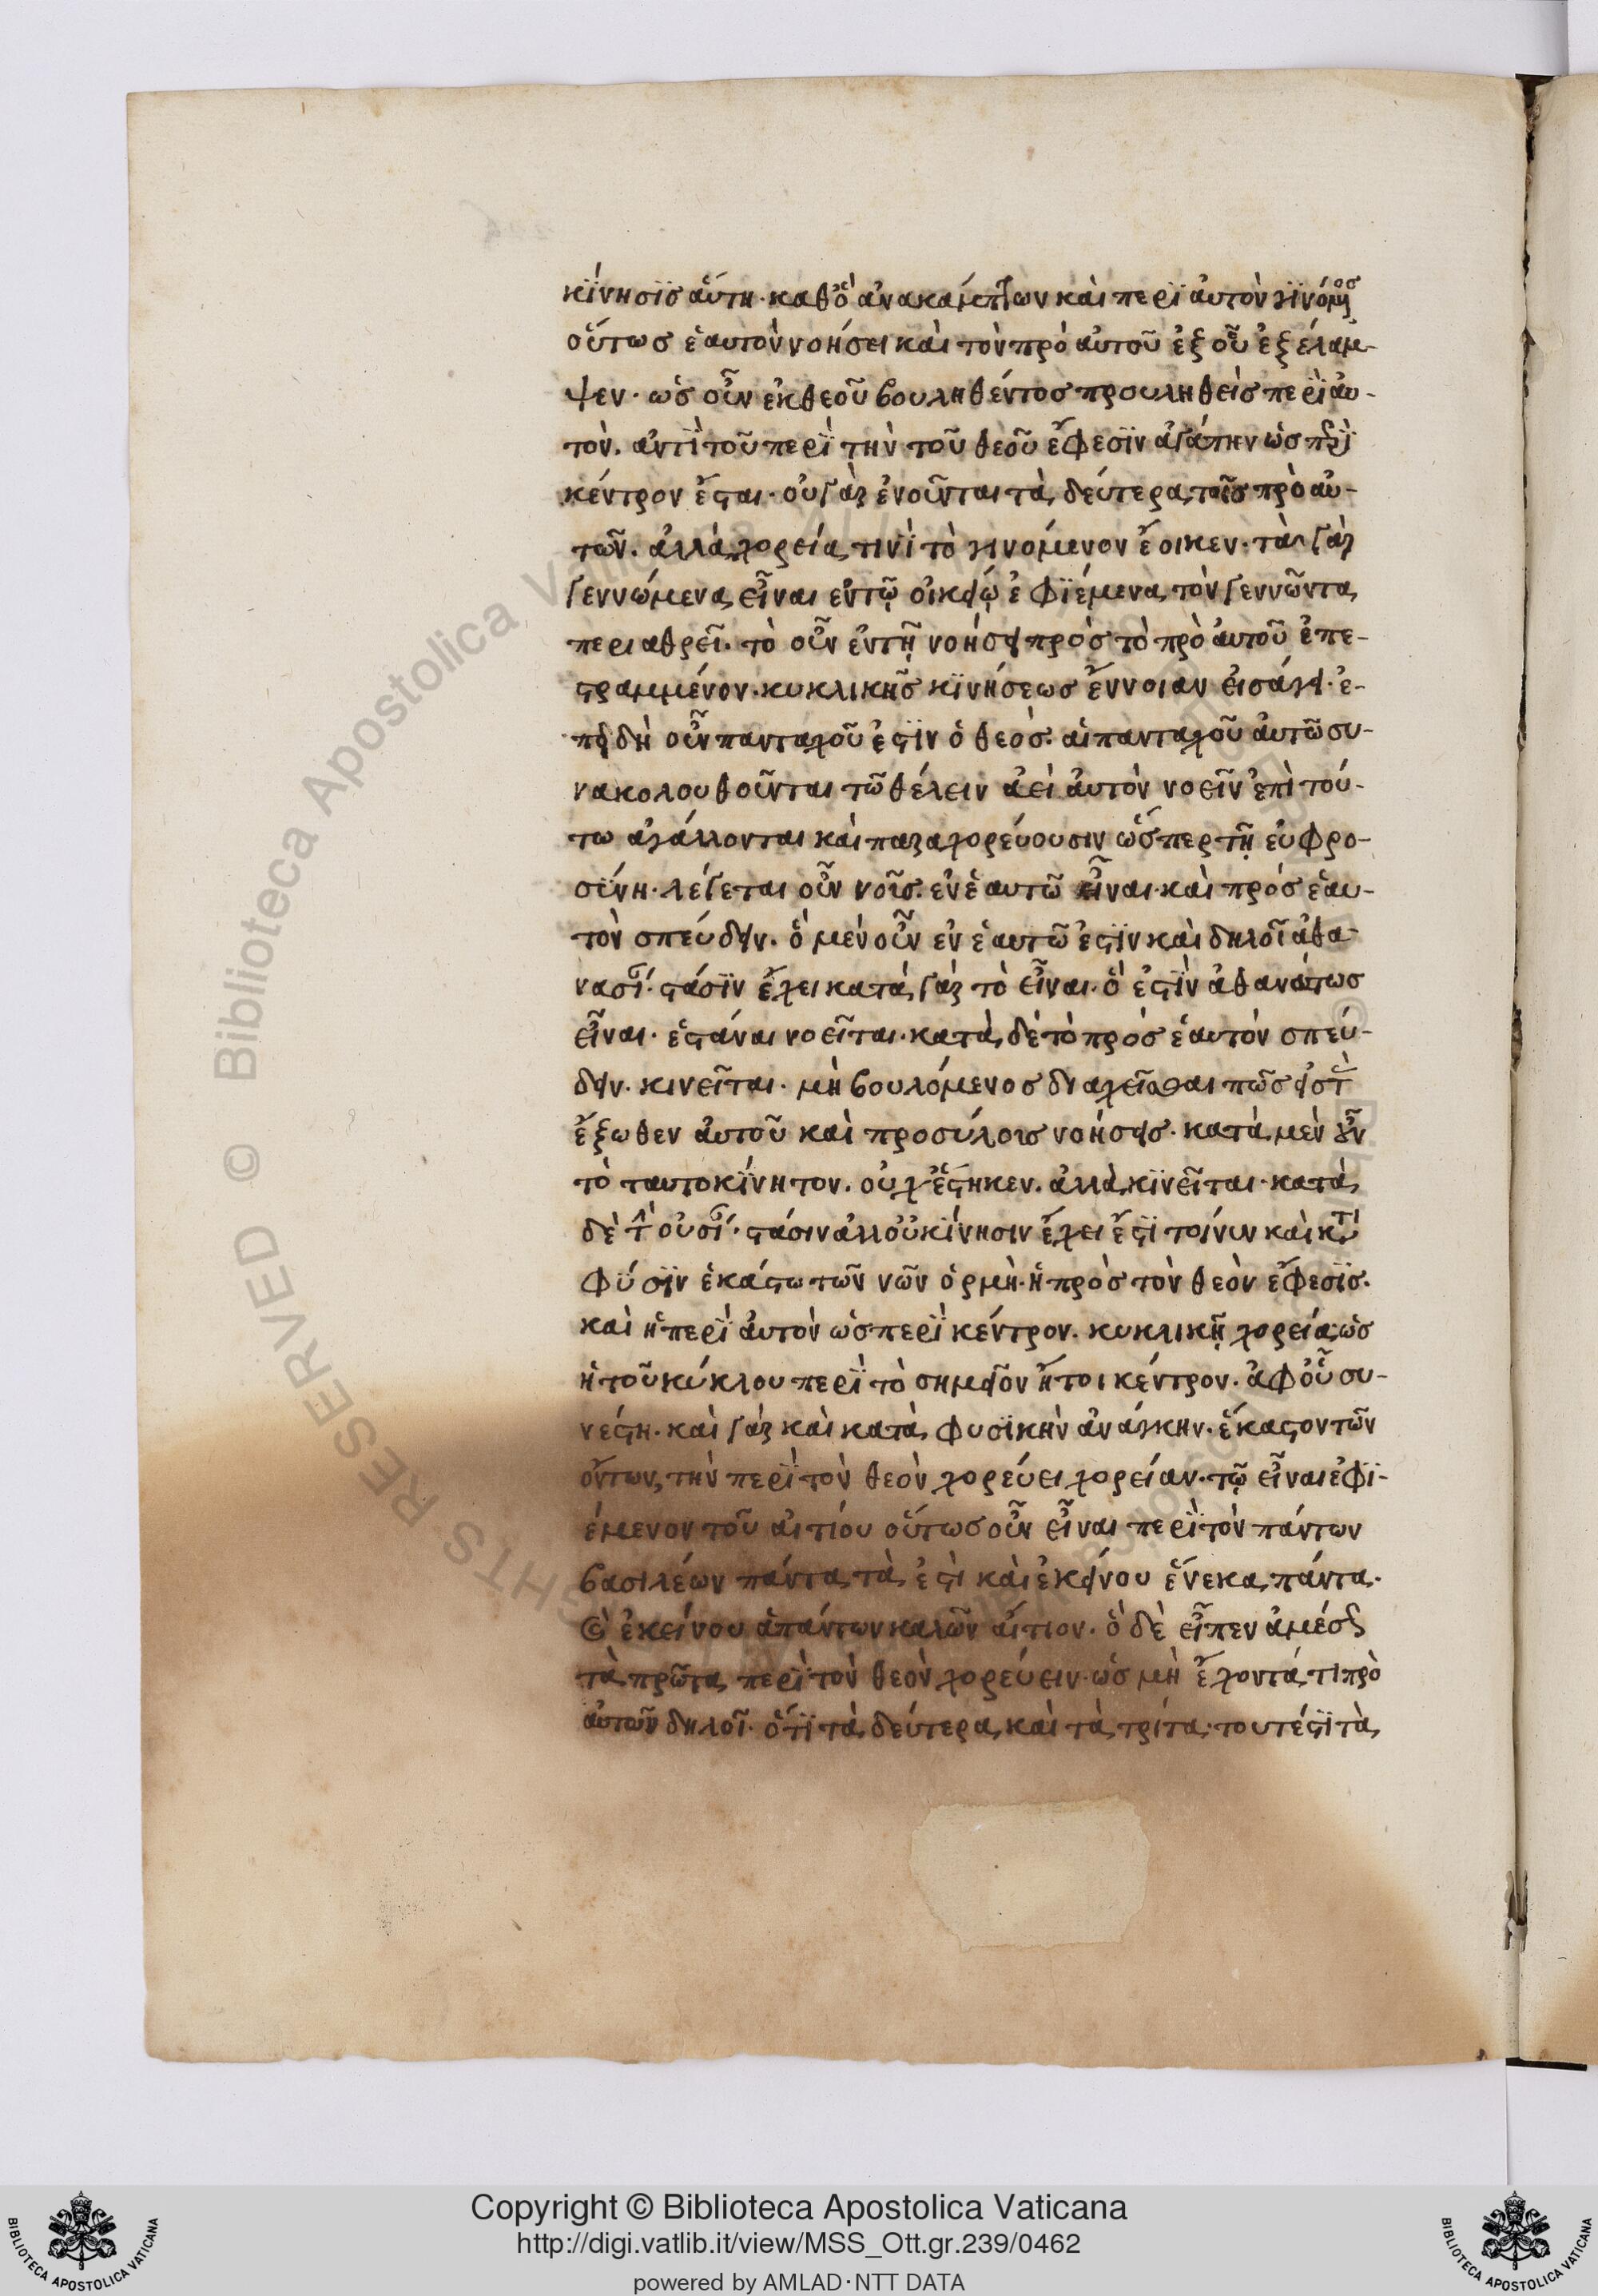 κΐνησϊσ ἅυτη· καθ' ὃ ἀνακάμπτων καὶ περὶ ἀυτὸν γϊνόμενοσ
οὕτωσ ἑαυτὸν νοήσει καὶ τὸν πρὸ ἀυτοῦ ἐξ οὗ ἐξέλαμ-
ψεν· ὡσ οὖν ἐκ θεοῦ βουληθέντοσ προυληθεὶσ περὶ ἀυ-
τὸν. ἀντὶ τοῦ περὶ τὴν τοῦ θεοῦ ἔφεσϊν ἀγάπην ὡσ περὶ
κέντρον ἔσται· οὐ γὰρ ἑνοῦνται τὰ δεύτερα τοῖσ πρὸ ἀυ-
τῶν. ἀλλὰ χορεία τινὶ τὸ γινόμενον ἔοικεν· τὰ γὰρ
γεννώμενα εἶναι ἐν τῶ οἰκείω ἐφϊέμενα, τὸν γεννῶντα
περιαθρεῖ. τὸ οὖν ἐν τῇ νοήσει πρὸσ τὸ πρὸ ἀυτοῦ ἐπε-
στραμμένον. κυκλικῆσ κϊνήσεωσ ἔννοιαν εἰσάγει· ἐ-
πειδὴ οὖν πανταχοῦ ἐστϊν ὁ θεόσ. αἱ πανταχοῦ ἀυτῶ συ-
νακολουθοῦνται τῶ θέλειν ἀεὶ ἀυτὸν νοεῖν ἐπὶ τού-
τω ἀγάλλονται καὶ παραχορεύουσιν ὥσπερ τῇ εὐφρο-
σΰνη· λέγεται οὖν νοῖσ ἐν ἑαυτῶ εἶναι· καὶ πρὸσ ἑαυ-
τὸν σπεύδειν. ὁ μὲν οὖν ἐν ἑαυτῶ ἐστϊν καὶ δηλοῖ ἀθα-
νασί· στάσϊν ἔχει κατὰ γὰρ τὸ εἶναι· ὅ ἐστϊν ἀθανάτωσ
εἶναι· ἑστάναι νοεῖται· κατὰ δὲ τὸ πρὸσ ἑαυτὸν σπεύ-
δειν. κινεῖται· μὴ βουλόμενοσ διαχεῖσθαι πῶσ εἰσ τ
ἔξωθεν ἀυτοῦ καὶ προσύλοισ νοήσεισ· κατὰ μὲν οὖν
τὸ ταυτοκίνητον. οὐχ ἕστηκεν. ἀλλὰ κϊνεῖται· κατὰ
δὲ τὴν οὐσί· στάσιν ἀλλ' οὐ κίνησιν ἔχει ἔστϊ τοίνυν καὶ κατὰ
φύσϊν ἑκάστω τῶν νῶν ὁρμὴ· ἡ πρὸσ τὸν θεὸν ἔφεσϊσ.
καὶ ἡ περὶ ἀυτὸν ὡσ περὶ κέντρον. κυκλικῇ χορεία, ὡσ
ἡ τοῦ κύκλου περὶ τὸ σημεῖον ἤτοι κέντρον. ἀφ' οὗ συ-
νέστη· καὶ γὰρ καὶ κατὰ φυσϊκὴν ἀνάγκην· ἕκαστον τῶν
ὄντων, τὴν περὶ τὸν θεὸν χορεύει χορείαν. τῷ εἶναι ἐφϊ-
έμενον τοῦ αἰτίου οὕτωσ οὖν εἶναι περὶ τὸν πάντων
βασιλέων πάντα τὰ ἐστὶ καὶ ἐκείνου ἕνεκα πάντα.
ἐκείνου ἁπάντων καλῶν αἴτιον. ὁ δὲ εἶπεν ἀμέσωσ
τὰ πρῶτα περὶ τὸν θεὸν χορεύειν· ὡσ μὴ ἔχοντά τι πρὸ
ἀυτῶν δηλοῖ· ὅτϊ τὰ δεύτερα καὶ τὰ τρίτα· τουτέστϊ τὰ
Copyright © Biblioteca Apostolica Vaticana
http://digi.vatlib.it/view/MSS_Ott.gr.239/0462
powered by AMLAD·NTT DATA